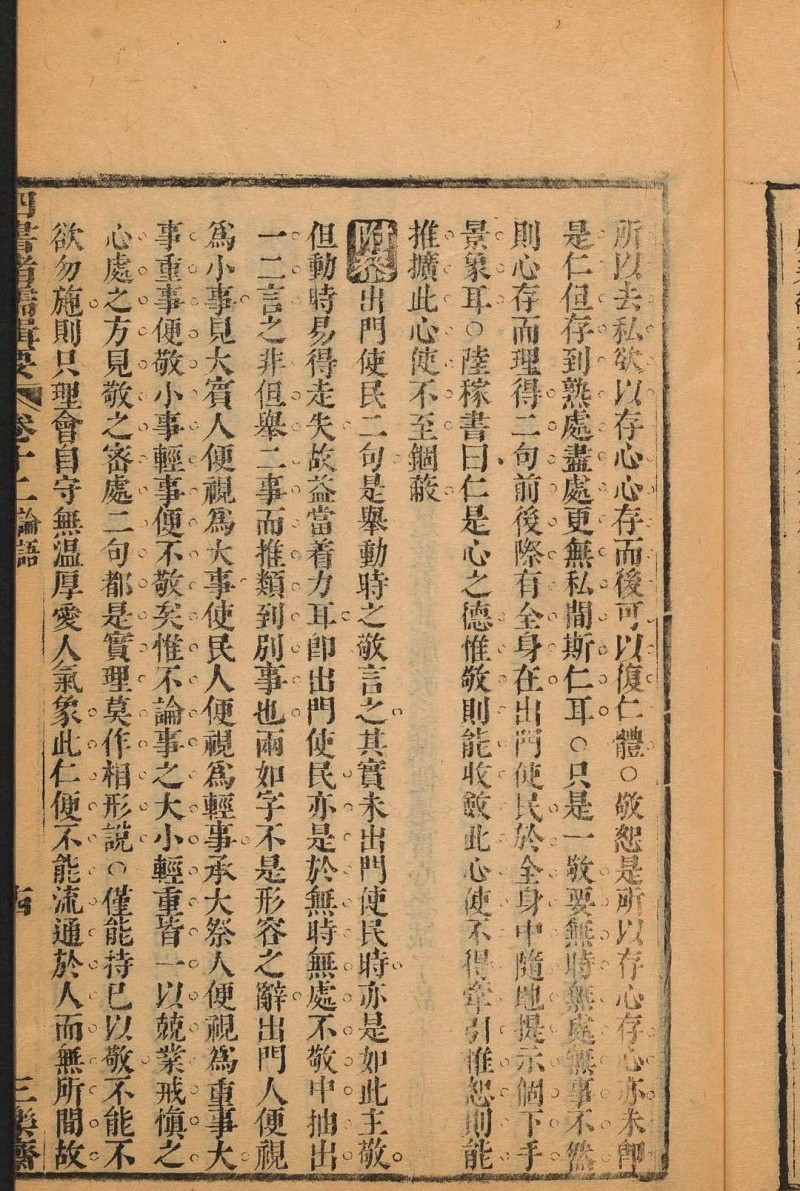 所以去私欲以存心心存而後可以復仁體○敬恕是所以存心存心亦未即
是仁但存到熟處盡處更無私間斯仁耳○只是一敬要無時無處無事不然
則心存而理得二句前後際有全身在出門使民於全身中隨地提示個下手
景象耳○陸稼書曰仁是心之德惟敬則能收斂此心使不得牽引惟恕則能
推擴此心使不至錮蔽
附參出門使民二句是舉動時之敬言之其實未出門使民時亦是如此主敬
但動時易得走失故益當着力耳即出門使民亦是於無時無處不敬中抽出
一二言之非但舉二事而推類到別事也兩如字不是形容之辭出門人便視
為小事見大賓人便視為大事使民人便視為輕事承大祭人便視為重事大
事重事便敬小事輕事便不敬矣惟不論事之大小輕重皆一以兢業戒慎之
心處之方見敬之密處二句都是實理莫作相形說○僅能持已以敬不能不
欲勿施則只理會自守無溫厚愛人氣象此仁便不能流通於人而無所間故
四書諸儒輯要 卷十二論語 三樂齋